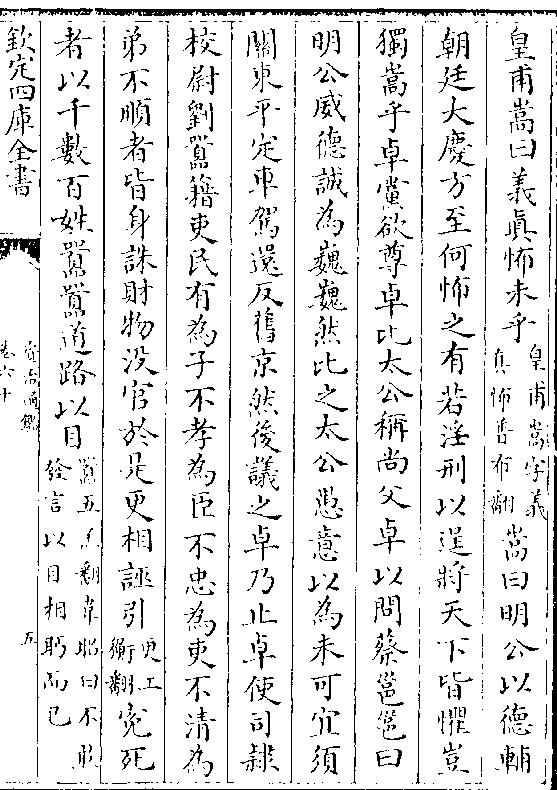 皇甫嵩曰義真怖未乎皇甫嵩字義真怖普布翻嵩曰明公以德輔
朝廷大慶方至何怖之有若淫刑以逞將天下皆懼豈
獨嵩乎卓黨欲尊卓比太公稱尚父卓以問蔡邕邕曰
明公威德誠為巍巍然比之太公愚意以為未可宜須
關東平定車駕還反舊京然後議之卓乃止卓使司隸
校尉劉囂籍吏民有為子不孝為臣不忠為吏不清為
弟不順者皆身誅財物没官於是更相誣引更工衡翻寃死
者以千數百姓囂囂道路以目囂五羔翻韋昭曰不敢發言以目相眄而已
欽定四庫全書
資治通鑑
卷六十
五